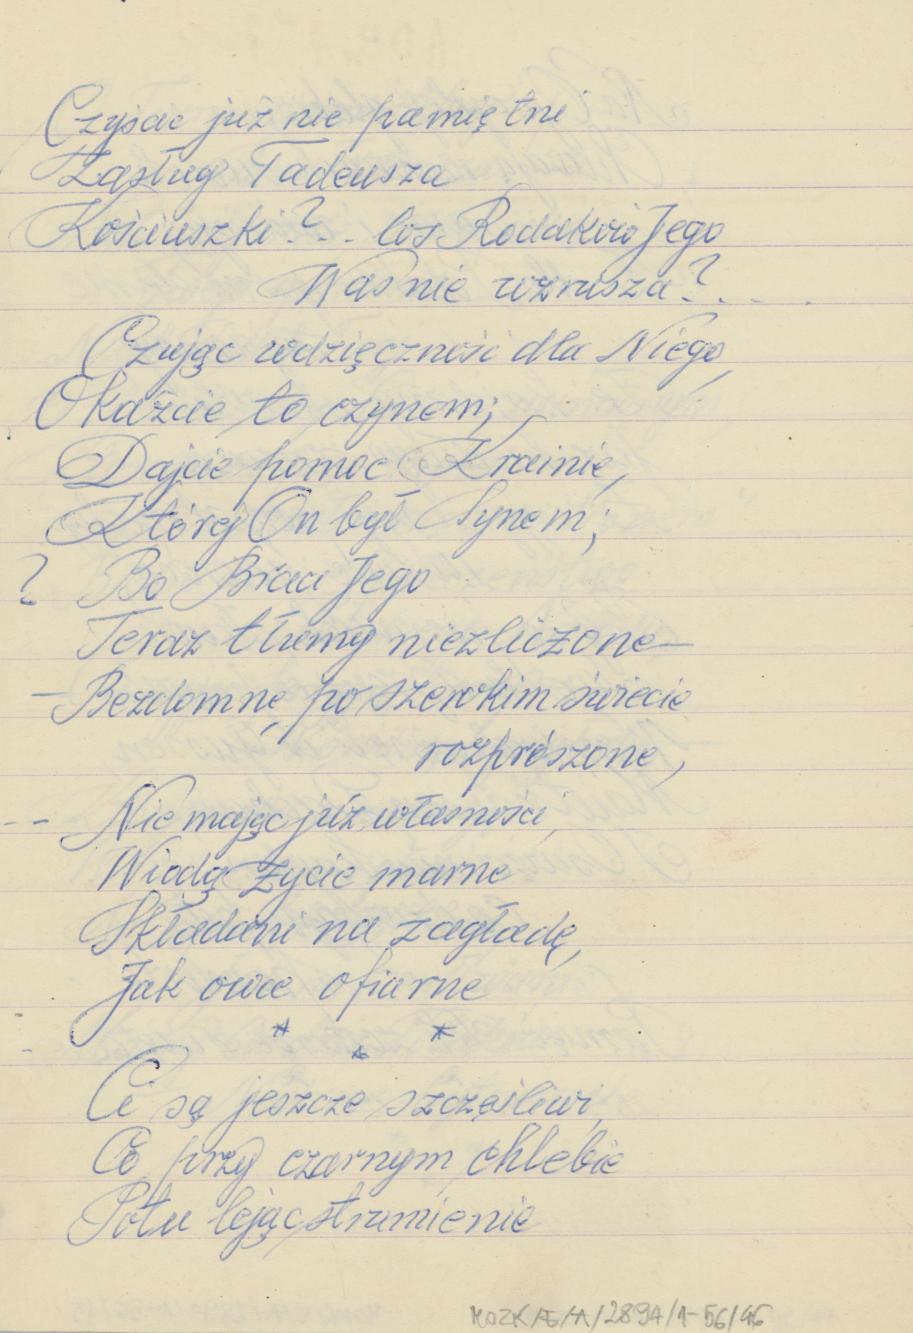 Czyście już nie pamiętni
Zasług Tadeusza
Kościuszki?.. los Rodaków Jego
Was nie wzrusza?....
Czując wdzięczność dla Niego,
Okażcie to czynem;
Dajcie pomoc Krainie,
Której On był Synem;
? Bo Bracia Jego
Teraz tłumy niezliczone –
– Bezdomne, po szerokim świecie
rozprószone,
-- Nie mając już własności,
Wiodą życie marne
Składani na zagładę,
Jak owce ofiarne
* * *
Ci są jeszcze szczęśliwi,
Co przy czarnym chlebie
Potu lejąc strumienie
MOZK/AE/A/2894/1-56/46